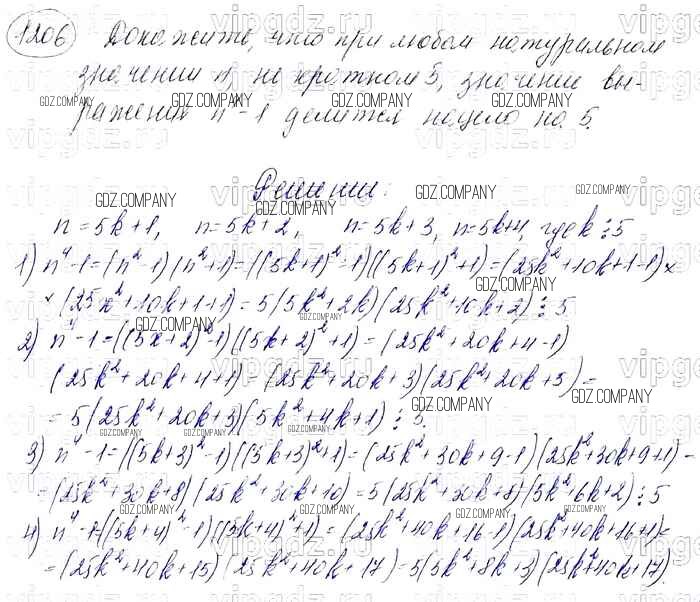 1206 Докажите, что при любом натуральном
значении n, не кратном 5, значение вы-
ражения n⁴-1 делится нацело на 5.
Решение:
n=5k+1, n=5k+2, n=5k+3, n=5k+4, где k⋮5
1) n⁴-1=(n²-1)(n²+1)=((5k+1)²-1)((5k+1)²+1)=(25k²+10k+1-1)×
×(25k²+10k+1+1)=5(5k²+2k)(25k²+10k+2)⋮5
2) n⁴-1=((5k+2)²-1)((5k+2)²+1)=(25k²+20k+4-1)
(25k²+20k+4+1)=(25k²+20k+3)(25k²+20k+5)=
=5(25k²+20k+3)(5k²+4k+1)⋮5.
3) n⁴-1=((5k+3)²-1)((5k+3)²+1)=(25k²+30k+9-1)(25k²+30k+9+1)-
=(25k²+30k+8)(25k²+30k+10)=5(25k²+30k+8)(5k²+6k+2)⋮5
4) n⁴-1=((5k+4)²-1)((5k+4)²+1)=(25k²+40k+16-1)(25k²+40k+16+1)=
=(25k²+40k+15)(25k²+40k+17)=5(5k²+8k+3)(25k²+40k+17)
vipgdz.ru
GDZ.COMPANY